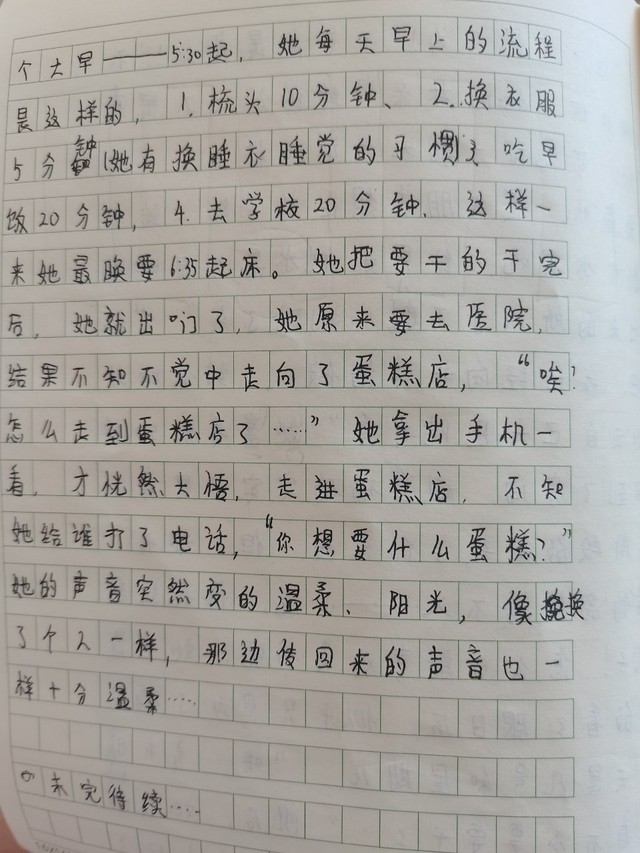 个大早——5:30起，她每天早上的流程
是这样的，1.梳头10分钟、2.换衣服
5分钟(她有换睡衣睡觉的习惯)3吃早
饭20分钟，4.去学校20分钟.这样一
来她最晚要6:35起床。她把要干的干完
后，她就出门了，她原来要去医院，
结果不知不觉中走向了蛋糕店，“唉?
怎么走到蛋糕店了……”她拿出手机一
看，才恍然大悟，走进蛋糕店，不知
她给谁打了电话，“你想要什么蛋糕?”
她的声音突然变的温柔、阳光，像换
了个人一样，那边传回来的声音也一
样十分温柔……
未完待续……